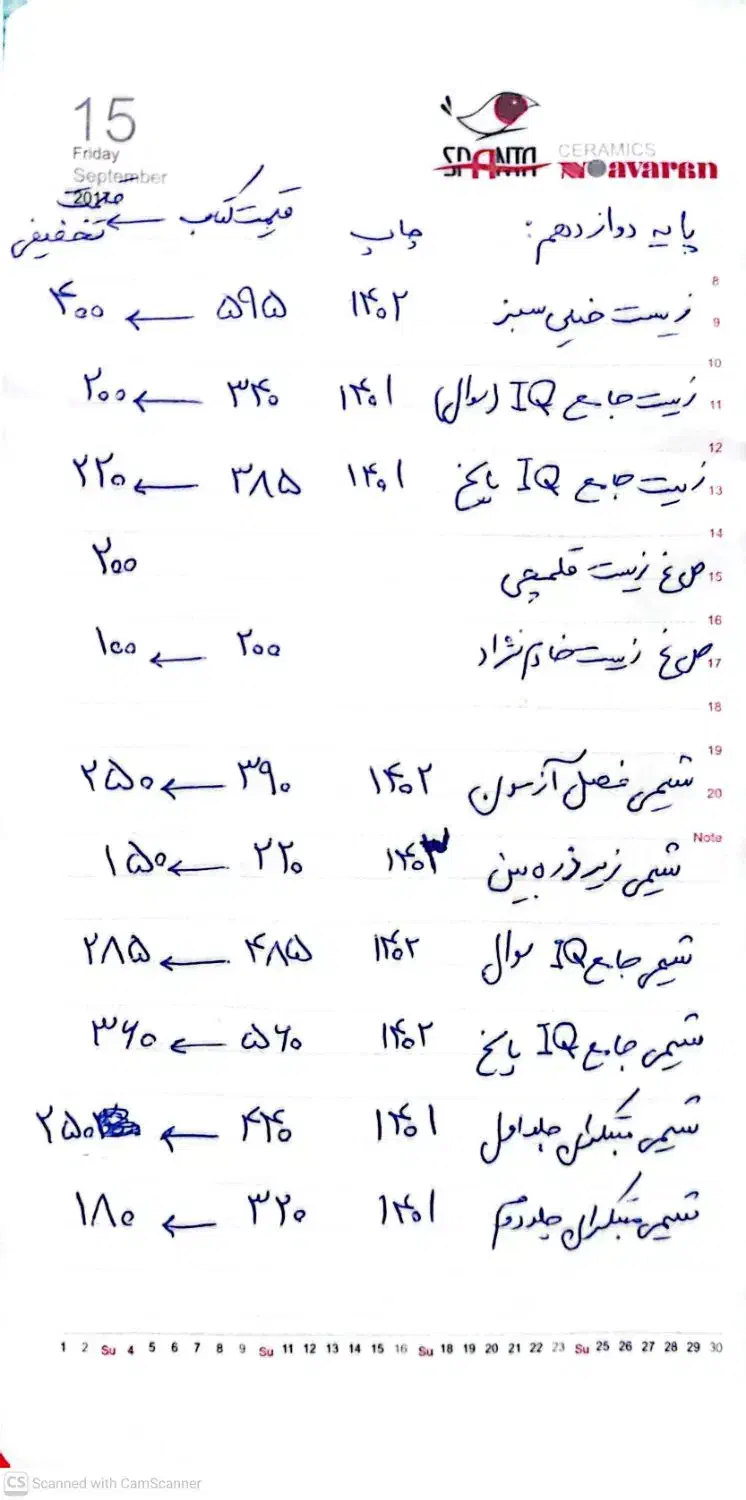 15
Friday
September
2017
SPANTA
CERAMICS
Navaren
پایه دوازدهم: چاپ قیمت کتاب ← قیمت تخفیفی
8
زیست خیلی سبز ۱۴۰۲ ۵۹۵ ← ۴۰۰
9
10
زیست جامع IQ (سوال) ۱۴۰۱ ۳۴۰ ← ۲۰۰
11
12
زیست جامع IQ پاسخ ۱۴۰۱ ۳۸۵ ← ۲۲۰
13
14
ص غ زیست قلمچی ۲۰۰
15
16
ص غ زیست خادم نژاد ۲۰۰ ← ۱۰۰
17
18
19
شیمی فصل آزمون ۱۴۰۲ ۳۹۰ ← ۲۵۰
20
Note
شیمی زیر ذره بین ۱۴۰۳ ۲۲۰ ← ۱۵۰
شیمی جامع IQ سوال ۱۴۰۲ ۴۸۵ ← ۲۸۵
شیمی جامع IQ پاسخ ۱۴۰۲ ۵۶۰ ← ۳۶۰
شیمی مبتکران جلد اول ۱۴۰۱ ۴۴۰ ← ۲۵۰
شیمی مبتکران جلد دوم ۱۴۰۱ ۳۲۰ ← ۱۸۰
1 2 Su 4 5 6 7 8 9 Su 11 12 13 14 15 16 Su 18 19 20 21 22 23 Su 25 26 27 28 29 30
CS Scanned with CamScanner